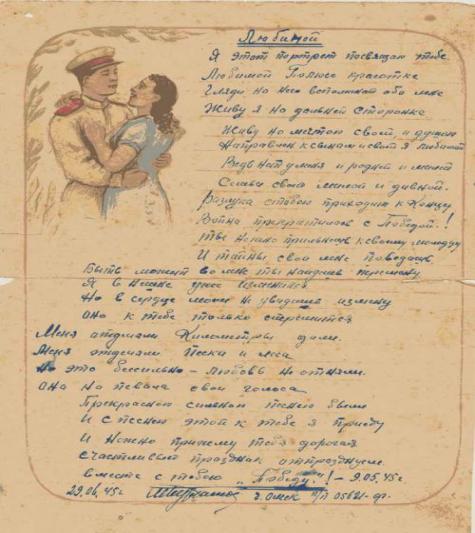 Любимой
Я этот портрет посвящаю тебе
Любимой красотке
Гляди на него вспоминай обо мне
Живу я на дальной сторонке
Живу но мечтою своей и душою
Направлен к
Ведь нет у меня и родней и милей
Славы своей милой и дивной.
Разлука с тобою приходит к концу
Война прекратилась с Победой.!
Ты нежно прильнешь к своему молодцу
И тайны свои мне поведаешь
Быть может во мне ты найдешь перемену
Я внешне уже изменился
Но в сердце моем не увидишь измену
Оно к тебе только стремится
Меня отделяли километры дали.
Меня отделяли Пески и леса
Но это бессильно – любовь не отняли.
Она на певала свои голоса
Прекрасной сильной песней была
И с песней этой к тебе я приду
И нежно прижму тебя дорогая
Счастливый праздник отпразднуем.
вместе с тобою „Победу"! – 9.05.45г
29.06.45г г. Омск п/п 05621-ф.